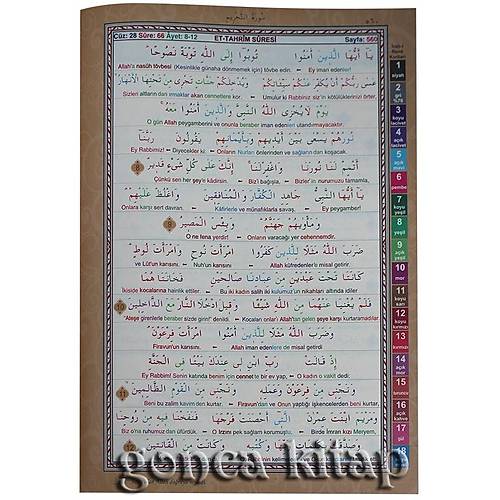 سورة التحريم
Cüz: 28 Sûre: 66 Âyet: 8-12 ET-TAHRÎM SÛRESİ Sayfa: 560
يَا أَيُّهَا الَّذِينَ آمَنُوا تُوبُوا إِلَى اللَّهِ تَوْبَةً نَصُوحًا
Allah'a nasûh tövbesi (Kesinlikle günaha dönmemek için) tövbe edin. Ey iman edenler!
عَسَى رَبُّكُمْ أَنْ يُكَفِّرَ عَنْكُمْ سَيِّئَاتِكُمْ وَيُدْخِلَكُمْ جَنَّاتٍ تَجْرِي مِنْ تَحْتِهَا الْأَنْهَارُ
Sizleri altların dan ırmaklar akan cennetlere kor, Umulur ki Rabbiniz siz'in günahlarınızı örter,
يَوْمَ لَا يُخْزِي اللَّهُ النَّبِيَّ وَالَّذِينَ آمَنُوا مَعَهُ
O gün Allah peygamberini ve onunla beraber iman edenleri utandırmayacaktır.
نُورُهُمْ يَسْعَى بَيْنَ أَيْدِيهِمْ وَبِأَيْمَانِهِمْ يَقُولُونَ رَبَّنَا
Ey Rabbimiz! Diyecekler ki: Onların Nurları önlerinden ve sağlarından koşacak.
أَتْمِمْ لَنَا نُورَنَا وَاغْفِرْ لَنَا إِنَّكَ عَلَى كُلِّ شَيْءٍ قَدِيرٌ
8
Çünkü sen her şey'e kâdirsin. Biz'i bağışla, Bizler'in nurumuzu tamamla,
يَا أَيُّهَا النَّبِيُّ جَاهِدِ الْكُفَّارَ وَالْمُنَافِقِينَ وَاغْلُظْ عَلَيْهِمْ
Onlara karşı sert davran. Kâfirlerle ve münafıklarla savaş. Ey peygamber!
وَمَأْوَاهُمْ جَهَنَّمُ وَبِئْسَ الْمَصِيرُ
9
O ne fena yerdir! Onların varacağı yer cehennemdir.
ضَرَبَ اللَّهُ مَثَلًا لِلَّذِينَ كَفَرُوا امْرَأَتَ نُوحٍ وَامْرَأَتَ لُوطٍ
ve Lût'un karısını. Nuh'un karısını Allah küfredenler'e misal getirir,
كَانَتَا تَحْتَ عَبْدَيْنِ مِنْ عِبَادِنَا صَالِحَيْنِ فَخَانَتَاهُمَا
İkiside kocalarına hainlik ettiler. Bu iki kadın salih iki kulumuz'un nikahları altında idi
فَلَمْ يُغْنِيَا عَنْهُمَا مِنَ اللَّهِ شَيْئًا وَقِيلَ ادْخُلَا النَّارَ مَعَ الدَّاخِلِينَ
10
"Ateşe girenlerle beraber sizde girin!" denildi. Kocaları onlar'ı Allah'tan gelen şeye karşı kurtaramadılar
وَضَرَبَ اللَّهُ مَثَلًا لِلَّذِينَ آمَنُوا امْرَأَتَ فِرْعَوْنَ
Firavun'un karısını. Allah iman edenlere de misal getirdi
إِذْ قَالَتْ رَبِّ ابْنِ لِي عِنْدَكَ بَيْتًا فِي الْجَنَّةِ
Ey Rabbim! Senin katında benim için cennet'te bir ev yap, O kadın o vakit dedi:
وَنَجِّنِي مِنْ فِرْعَوْنَ وَعَمَلِهِ وَنَجِّنِي مِنَ الْقَوْمِ الظَّالِمِينَ
11
Beni bu zalim kavim den kurtar. Firavun'dan ve Onun yaptığı işkencelerden beni kurtar,
وَمَرْيَمَ ابْنَتَ عِمْرَانَ الَّتِي أَحْصَنَتْ فَرْجَهَا فَنَفَخْنَا فِيهِ مِنْ رُوحِنَا
Biz o'na ruhumuz dan üfürdük. O Irzını pek sağlam korumuştu. Birde İmran kızı Meryem,
وَصَدَّقَتْ بِكَلِمَاتِ رَبِّهَا وَكُتُبِهِ وَكَانَتْ مِنَ الْقَانِتِينَ
12
gonca kitap
1 siyah
2 gri %78
3 koyu lacivet
4 açık lacivet
5 açık mavi
6 pembe
7 koyu yeşil
8 yeşil
9 açık yeşil
10 mor
11 koyu sarı
12 koyu kırmızı
13 kırmızı
14 açık mor
15 turuncu
16 açık kahve
17 gül
18